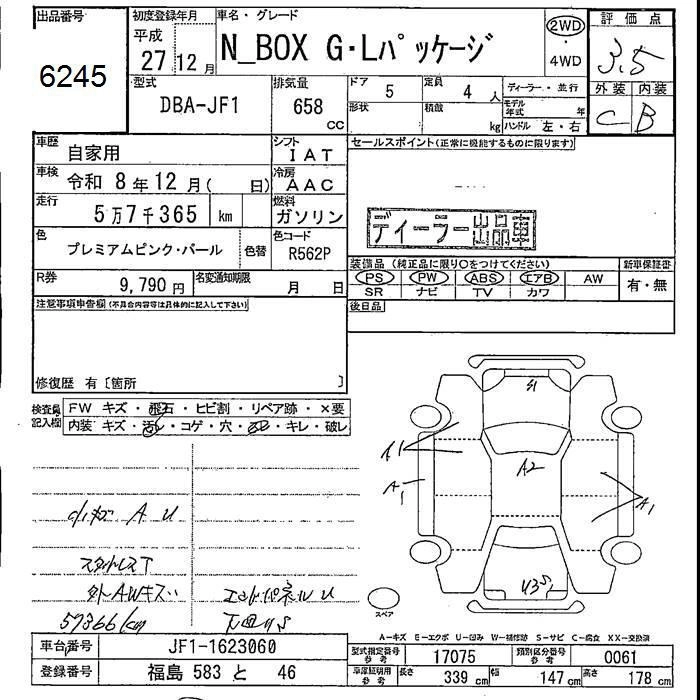 出品番号
6245
初度登録年月
平成
27 12月
車名・グレード
N_BOX G・Lパッケージ
2WD
・
4WD
評価点
3.5
外装 内装
C B
型式
DBA-JF1
排気量
658
cc
ドア 5
定員 4 人
形状
積載
kg
ディーラー・並行
モデル年式 年
ハンドル 左・右
車歴
自家用
シフト
IAT
車検
令和 8年12月( 日)
冷房
AAC
走行
5万7千365 km
燃料
ガソリン
色
プレミアムピンク・パール
色替
色コード
R562P
R券
9,790円
名変通知期限
月 日
セールスポイント(正常に機能するものに限ります)
ディーラー出品車
装備品 (純正品に限り○をつけてください)
PS PW ABS エアB AW
SR ナビ TV カワ
新車保証書
有・無
後日品
注意事項申告欄(不具合内容等は具体的に記入して下さい)
修復歴 有〔箇所 〕
検査員記入欄
FW キズ・飛石・ヒビ割・リペア跡・×要
内装 キズ・汚レ・コゲ・穴・スレ・キレ・破レ
小キズ A U
スタットレスT
外AWキズ
57366km
エンドパネルU
下回りS
S1
A1
A1
A2
A1
U3S1
スペア
A-キズ E-エクボ U-凹み W-補修跡 S-サビ C-腐食 XX-交換済
車台番号
JF1-1623060
登録番号
福島 583 と 46
型式指定番号
参考
17075
類別区分番号
参考
0061
車庫証明用
参考
長さ 339 cm
幅 147 cm
高さ 178 cm